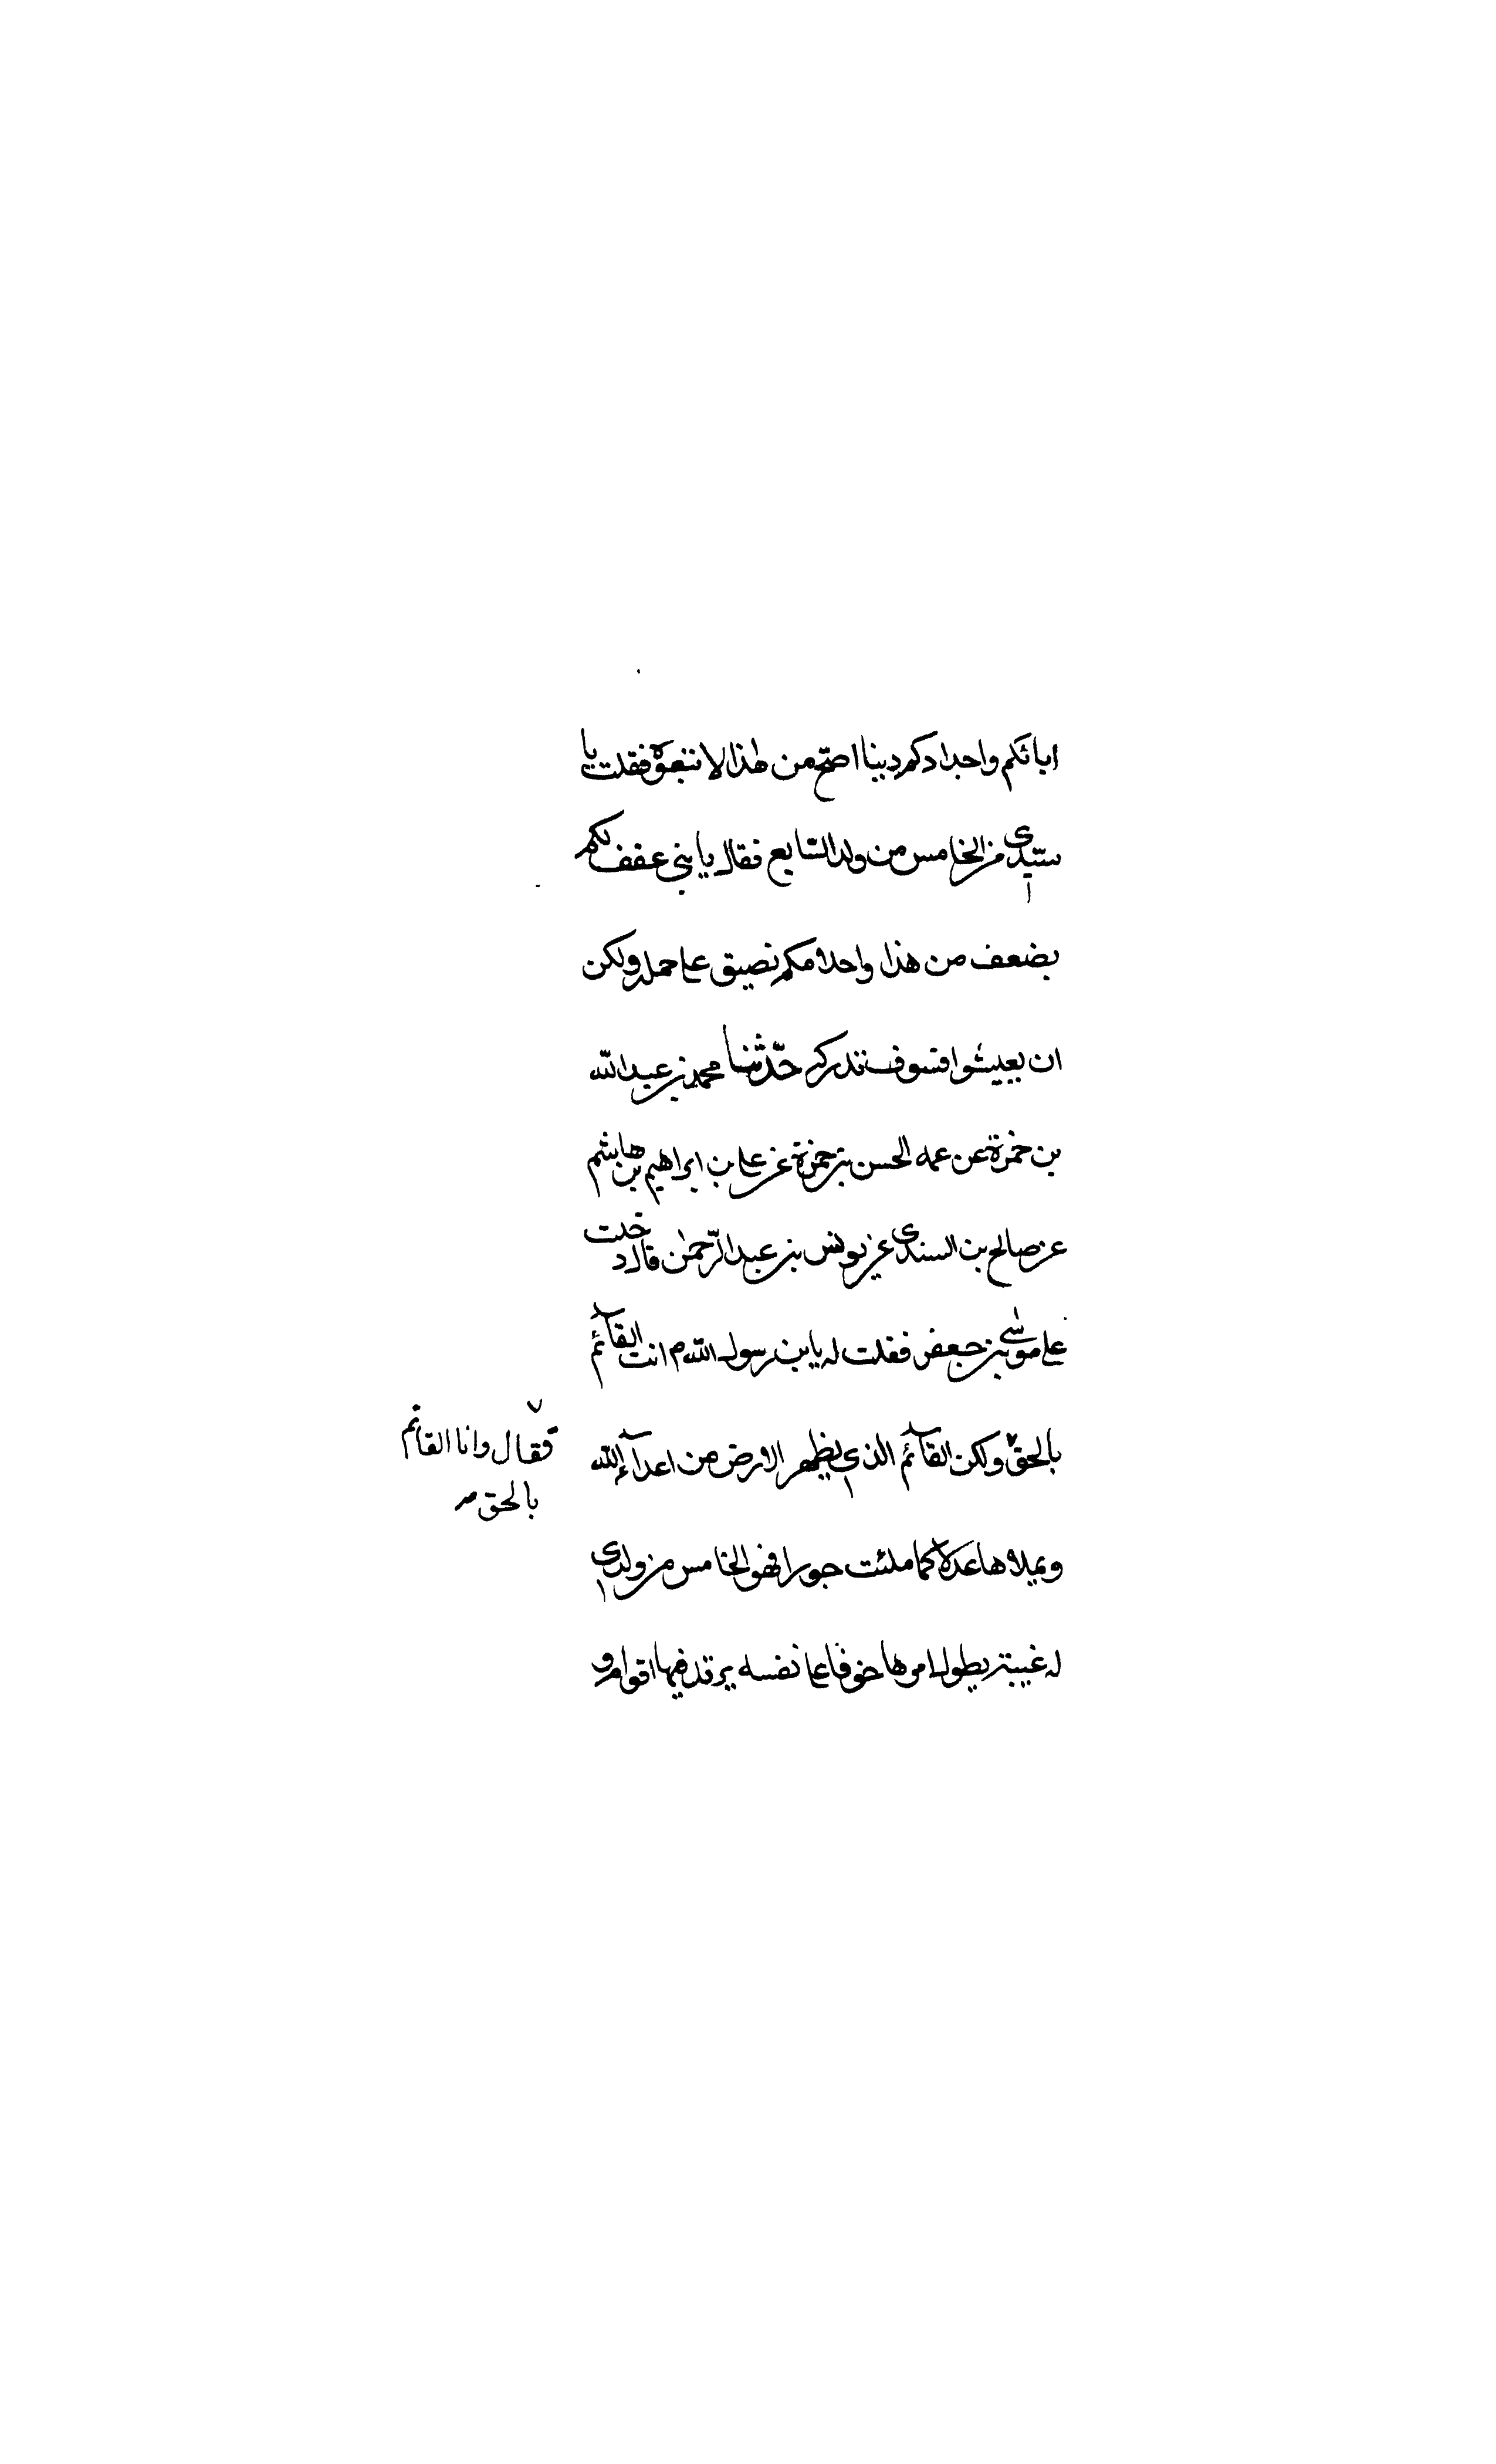 ابائكم واجدادكم دينا اصح من هذا لاتبعوه فقلت يا
سيدى من الخامس من ولد السابع فقال يا بنى عقولكم
يضعف من هذا واحلامكم تضيق على حمله ولكن
ان يعيشوا فسوف تدركه حدثنا محمد بن عبدالله
بن حمزة عن عمه الحسن بن حمزة عن على بن ابراهيم بن هاشم
عن صالح بن السندى عن يونس بن عبدالرحمن قال دخلت
على موسى بن جعفر فقلت له يابن رسول الله انت القآئم
بالحق ولكن القآئم الذى يطهر الارض من اعدآء الله
فقال وانا القائم
بالحق
ويملاها عدلا كما ملئت جورا فهو الخامس من ولدى
له غيبة يطول امرها خوفا على نفسه يرتد فيها اقوام و